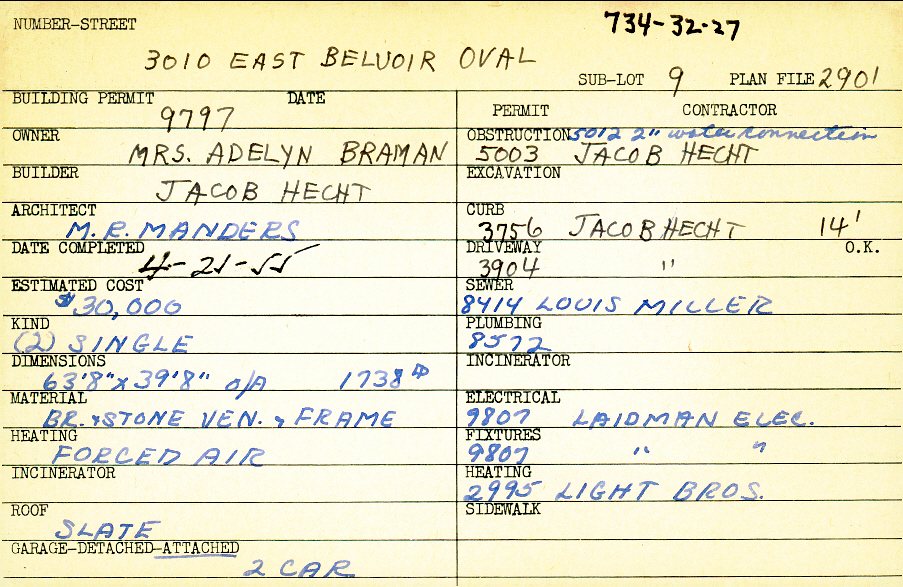 NUMBER-STREET
734-32-27
3010 EAST BELVOIR OVAL
SUB-LOT 9 PLAN FILE 2901
BUILDING PERMIT DATE
9797
OWNER
MRS. ADELYN BRAMAN
BUILDER
JACOB HECHT
ARCHITECT
M.R. MANDERS
DATE COMPLETED
4-21-55
ESTIMATED COST
$30,000
KIND
(2) SINGLE
DIMENSIONS
63'8" x 39'8" o/A 1738
MATERIAL
BR. & STONE VEN. & FRAME
HEATING
FORCED AIR
INCINERATOR
ROOF
SLATE
GARAGE-DETACHED-ATTACHED
2 CAR
PERMIT CONTRACTOR
OBSTRUCTION 5012 2" water connection
5003 JACOB HECHT
EXCAVATION
CURB
3756 JACOB HECHT 14'
DRIVEWAY O.K.
3904 "
SEWER
8414 LOUIS MILLER
PLUMBING
8572
INCINERATOR
ELECTRICAL
9807 LAIDMAN ELEC.
FIXTURES
9807 " "
HEATING
2995 LIGHT BROS.
SIDEWALK